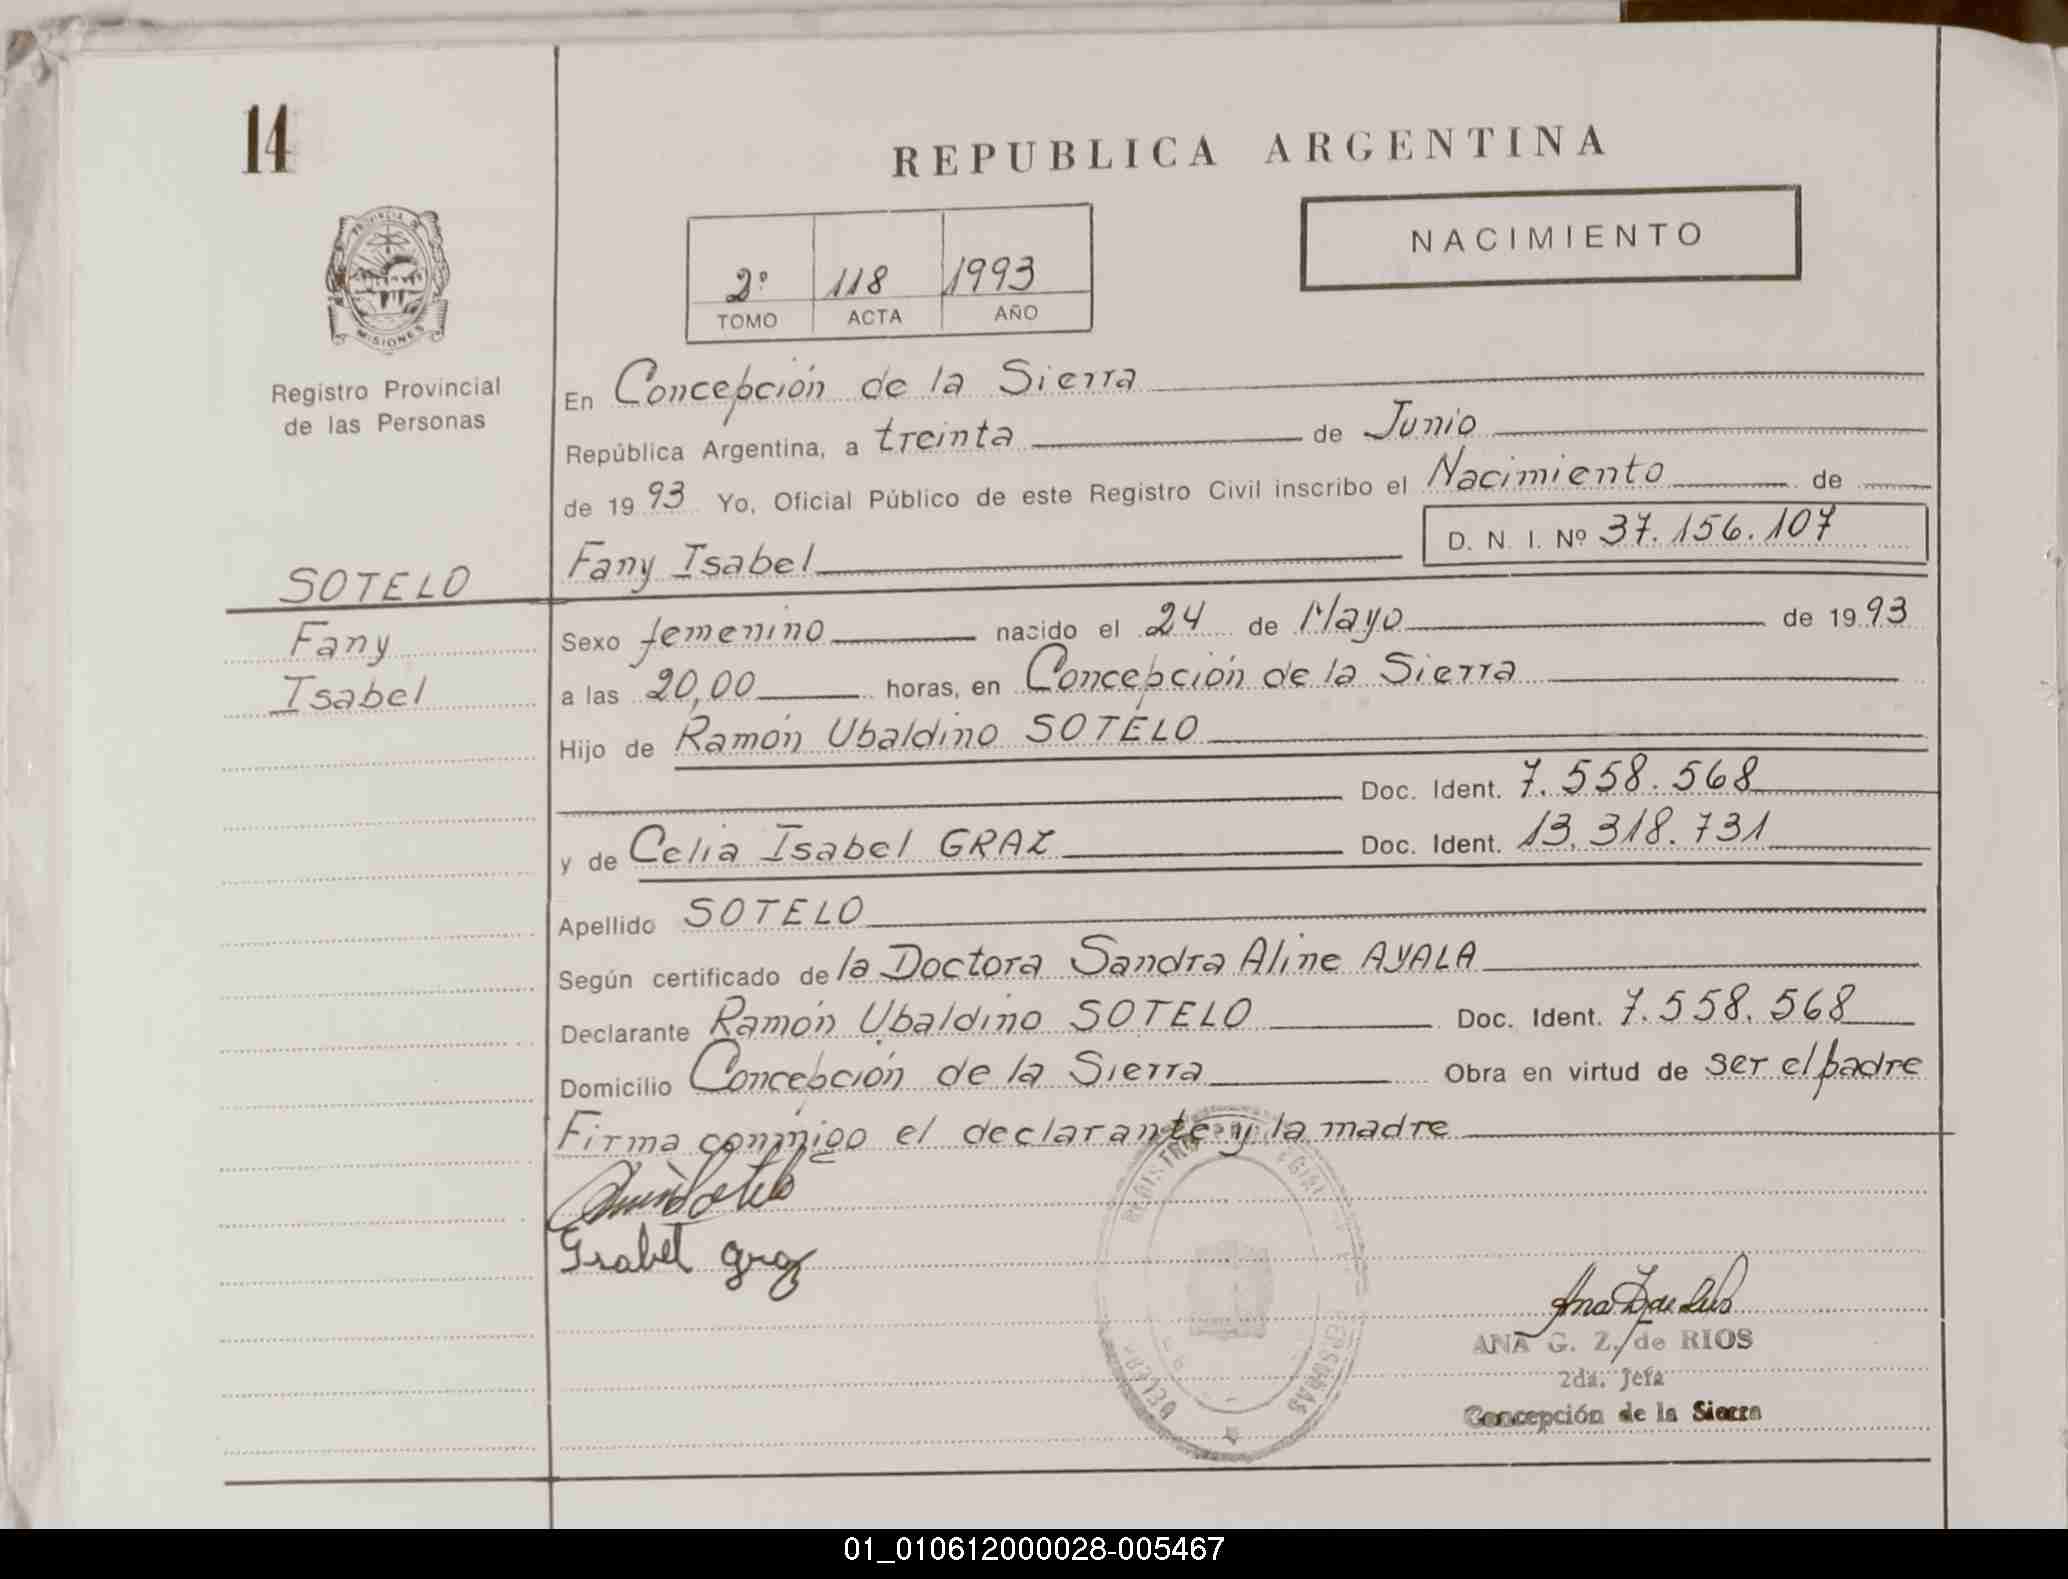 14
REPUBLICA ARGENTINA
NACIMIENTO
2º 118 1993
TOMO ACTA AÑO
PROVINCIA DE MISIONES
Registro Provincial
de las Personas
En Concepción de la Sierra
República Argentina, a treinta de Junio
de 1993 Yo, Oficial Público de este Registro Civil inscribo el Nacimiento de
D. N. I. Nº 37.156.107
Fany Isabel
SOTELO
Fany
Isabel
Sexo femenino nacido el 24 de Mayo de 1993
a las 20,00 horas, en Concepción de la Sierra
Hijo de Ramón Ubaldino SOTELO
Doc. Ident. 7.558.568
y de Celia Isabel GRAZ Doc. Ident. 13.318.731
Apellido SOTELO
Según certificado de la Doctora Sandra Aline AYALA
Declarante Ramón Ubaldino SOTELO Doc. Ident. 7.558.568
Domicilio Concepción de la Sierra Obra en virtud de ser el padre
Firma conmigo el declarante y la madre
Isabel Graz
ANA G. Z. de RIOS
2da. Jefa
Concepción de la Sierra
01_010612000028-005467